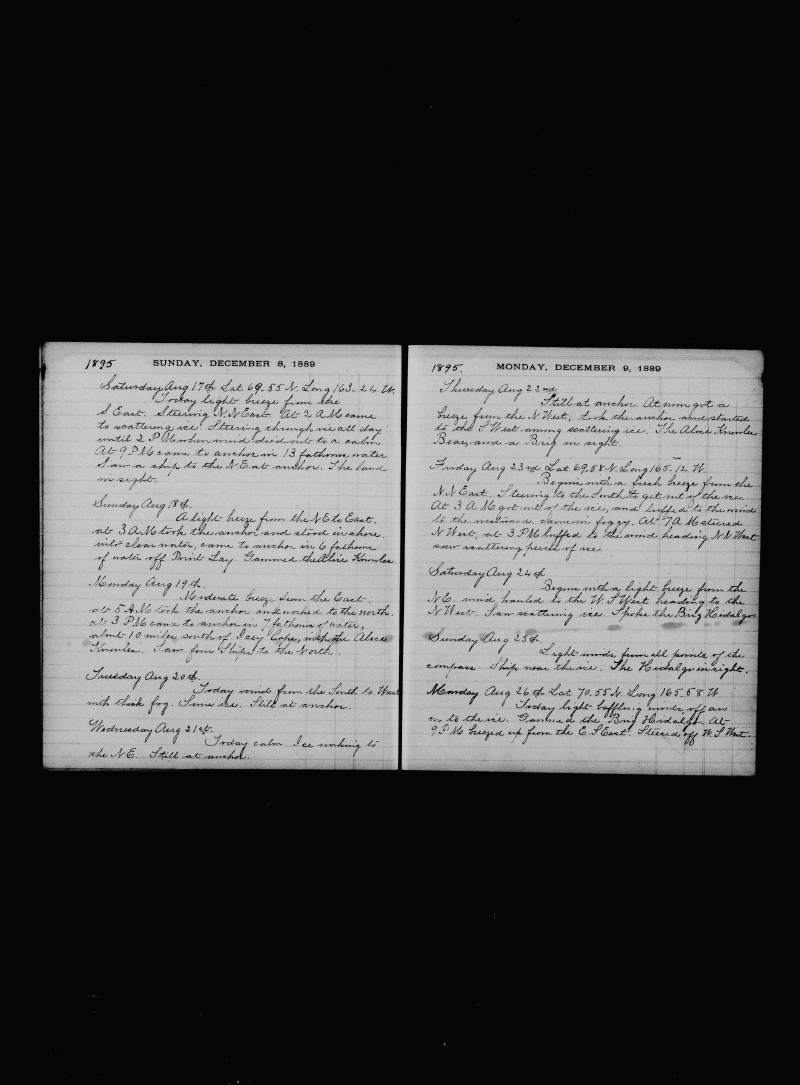 1895 SUNDAY, DECEMBER 8, 1889
Saturday Aug 17th Lat 69-55 N. Long 163-24 W.
Today light breeze from the
S East. Steering N.N East. At 2 AM came
to scattering ice. Steering through ice all day
until 2 PM when wind died out to a calm
At 9 PM came to anchor in 13 fathoms water
Saw a ship to the N East anchor. The land
in sight.
Sunday Aug 18th.
A light breeze from the NE to East.
at 3 AM took the anchor and stood in shore
into clear water, came to anchor in 6 fathoms
of water off Point Lay. Gammed the Alice Knowles.
Monday Aug 19th.
Moderate breeze from the East.
at 5 AM took the anchor and worked to the north.
at 3 PM came to anchor in 7 fathoms of water,
about 10 miles south of Icey Cape, with the Alice
Knowles. Saw four Ships to the North.
Tuesday Aug 20th.
Today wind from the South to West
with thick fog. Some ice. Still at anchor.
Wednesday Aug 21st.
Today calm Ice working to
the N E. Still at anchor.
1895. MONDAY, DECEMBER 9, 1889
Thursday Aug 22nd
Still at anchor. At noon got a
breeze from the N West, took the anchor and started
to the S West among scattering ice. The Alice Knowles
Bear, and a Brig in sight
Friday Aug 23rd Lat 69.58 N. Long 165-12 W.
Begins with a fresh breeze from the
N N East. Steering to the South to get out of the ice.
At 3 AM got out of the ice, and luffed to the wind
to the came in foggy. At 7 AM steered
N West, at 3 PM luffed to the wind heading N N West
saw scattering pieces of ice.
Saturday Aug 24th
Begin with a light breeze from the
N E. wind hauled to the W. S West heading to the
N West. Saw scattering ice. Spoke the Brig Hidalgo.
Sunday Aug 25th.
Light winds from all points of the
compass. Ship near the ice. The Hidalgo in sight.
Monday Aug 26th Lat 70.55 N. Long 165.58 W.
Today light baffling winds, off an
on to the ice. Gammed the Brig Hidalgo. At
9 PM breezed up from the E. S East. Steered off W. S West.